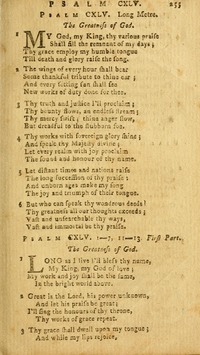 PSALM CXLV. 255
PSALM CXLV. Long Metre.
The Greatness of God.
1 MY God, my King, thy various praise
Shall fill the remnant of my days;
Thy grace employ my humble tongue
Till death and glory raise the song.
2 The wings of every hour shall bear
Some thankful tribute to thine ear;
And every setting sun shall see
New works of duty done for thee.
3 Thy truth and justice I'll proclaim;
Thy bounty flows, an endless stream;
Thy mercy swift; thine anger slow,
But dreadful to the stubborn foe.
4 Thy works with sovereign glory shine;
And speak thy Majesty divine;
Let every realm with joy proclaim
The sound and honour of thy name.
5 Let distant times and nations raise
The long succession of thy praise;
And unborn ages make my song
The joy and triumph of their tongue.
6 But who can speak thy wondrous deeds!
Thy greatness all our thoughts exceeds;
Vast and unsearchable thy ways,
Vast and immortal be thy praise.
PSALM CXLV. 1—7, 11—13. First Part.
The Greatness of God.
1 LONG as I live I'll bless thy name,
My King, my God of love;
My work and joy shall be the same,
In the bright world above.
2 Great is the Lord, his power unknown,
And let his praise be great;
I'll sing the honours of thy throne,
Thy works of grace repeat.
3 Thy grace shall dwell upon my tongue;
And while my lips rejoice,